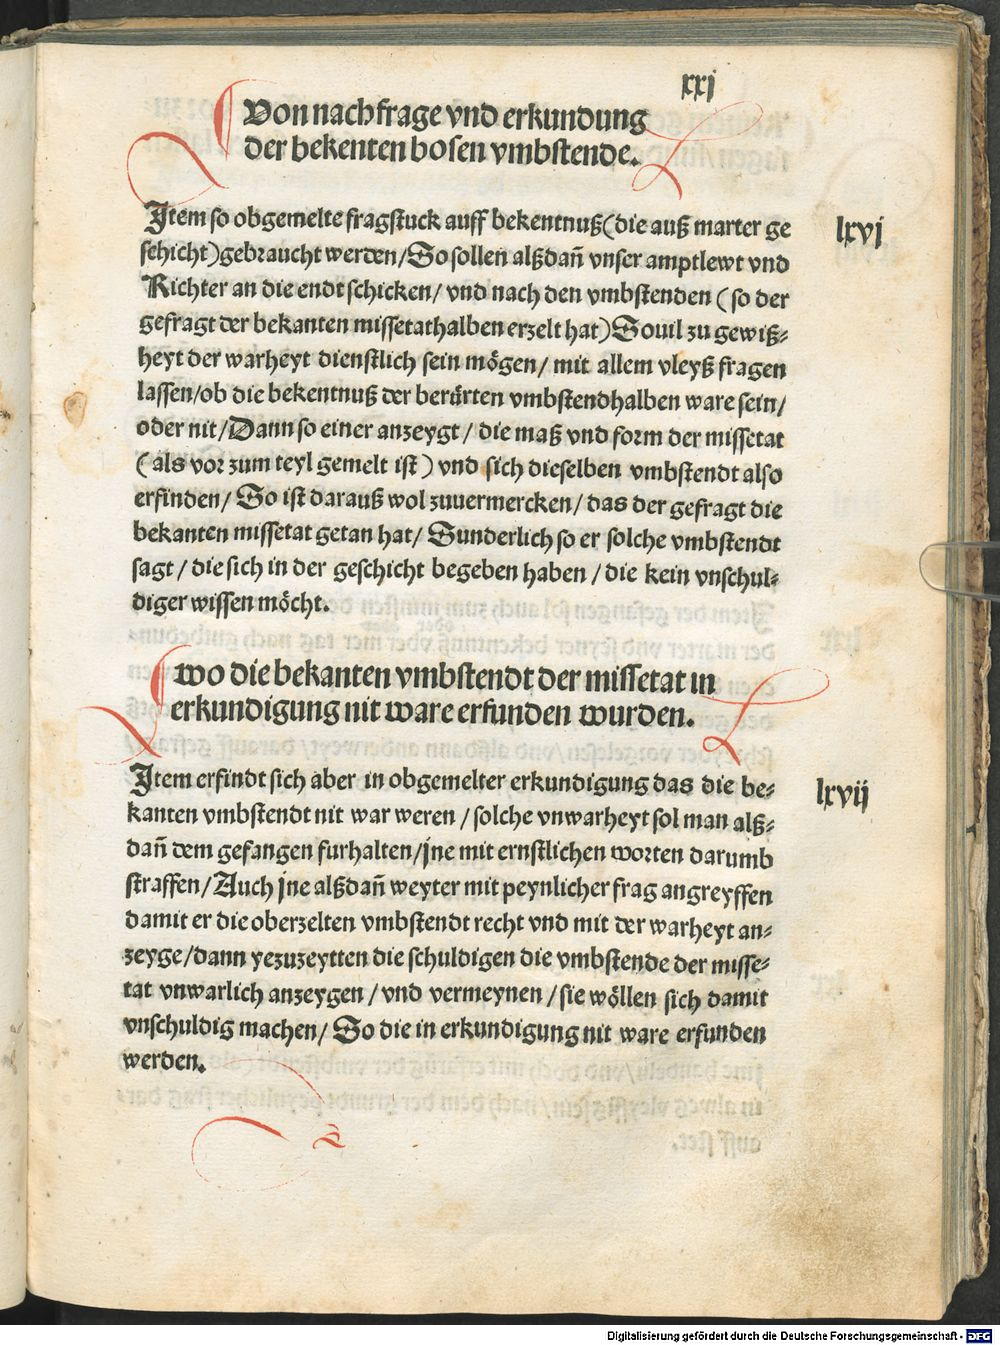 xxj
Von nachfrage vnd erkundung
der bekenten bosen vmbstende.
Jtem so obgemelte fragstuck auff bekentnuß (die auß marter ge
schicht) gebraucht werden / So sollen alßdañ vnser amptlewt vnd
Richter an die endt schicken / vnd nach den vmbstenden ( so der
gefragt der bekanten missetathalben erzelt hat) Souil zu gewiß⸗
heyt der warheyt dienstlich sein mögen / mit allem vleyß fragen
lassen / ob die bekentnuß der berürten vmbstendhalben ware sein /
oder nit / Dann so einer anzeygt / die maß vnd form der missetat
( als vor zum teyl gemelt ist ) vnd sich dieselben vmbstendt also
erfinden / So ist darauß wol zuuermercken / das der gefragt die
bekanten missetat getan hat / Sunderlich so er solche vmbstendt
sagt / die sich in der geschicht begeben haben / die kein vnschul⸗
diger wissen möcht.
lxvj
wo die bekanten vmbstendt der missetat in
erkundigung nit ware erfunden wurden.
Jtem erfindt sich aber in obgemelter erkundigung das die be⸗
kanten vmbstendt nit war weren / solche vnwarheyt sol man alß⸗
dañ dem gefangen furhalten / jne mit ernstlichen worten darumb
straffen / Auch jne alßdañ weyter mit peynlicher frag angreyffen
damit er die oberzelten vmbstendt recht vnd mit der warheyt an⸗
zeyge / dann yezuzeytten die schuldigen die vmbstende der misse⸗
tat vnwarlich anzeygen / vnd vermeynen / sie wöllen sich damit
vnschuldig machen / So die in erkundigung nit ware erfunden
werden.
lxvij
Digitalisierung gefördert durch die Deutsche Forschungsgemeinschaft - DFG